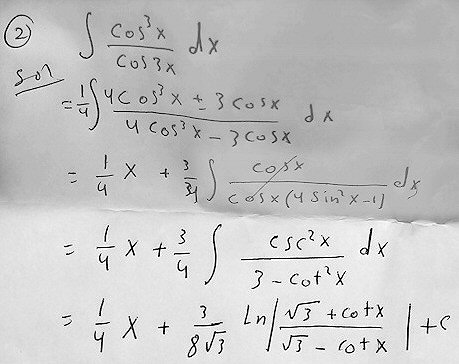 ② ∫ cos³x / cos3x dx
Sol
= 1/4 ∫ 4cos³x ± 3cosx / 4cos³x - 3cosx dx
= 1/4 x + 3/4 ∫ cosx / cosx(4sin²x-1) dx
= 1/4 x + 3/4 ∫ csc²x / 3 - cot²x dx
= 1/4 x + 3/8√3 Ln | √3 + cotx / √3 - cotx | + c